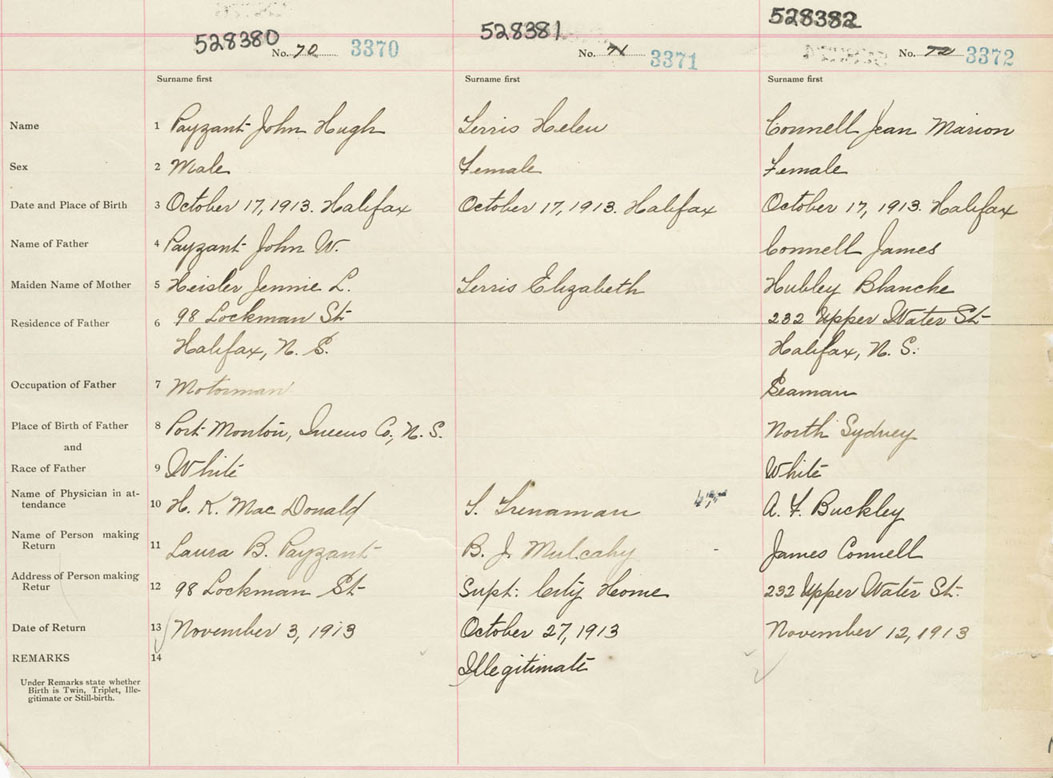 528380 528381 528382
No. 70 3370 No. 71 3371 No. 72 3372
Surname first Surname first Surname first
Name 1 Payzant John Hugh Ferris Helen Connell Jean Marion
Sex 2 Male Female Female
Date and Place of Birth 3 October 17, 1913. Halifax October 17, 1913. Halifax October 17, 1913. Halifax
Name of Father 4 Payzant John W. Connell James
Maiden Name of Mother 5 Heisler Jennie L. Ferris Elizabeth Hubley Blanche
Residence of Father 6 98 Lockman St 232 Upper Water St
Halifax, N. S. Halifax, N. S.
Occupation of Father 7 Motorman Seaman
Place of Birth of Father 8 Port Monton, Queens Co, N. S. North Sydney
and
Race of Father 9 White White
Name of Physician in at-
tendance 10 H. K. Mac Donald Trenaman A. F. Buckley
Name of Person making
Return 11 Laura B. Payzant B. J. Mulcahy James Connell
Address of Person making
Retur 12 98 Lockman St Supt: City Home 232 Upper Water St.
Date of Return 13 November 3, 1913 October 27, 1913 November 12, 1913
REMARKS 14 Illegitimate
Under Remarks state whether
Birth is Twin, Triplet, Ille-
gitimate or Still-birth.